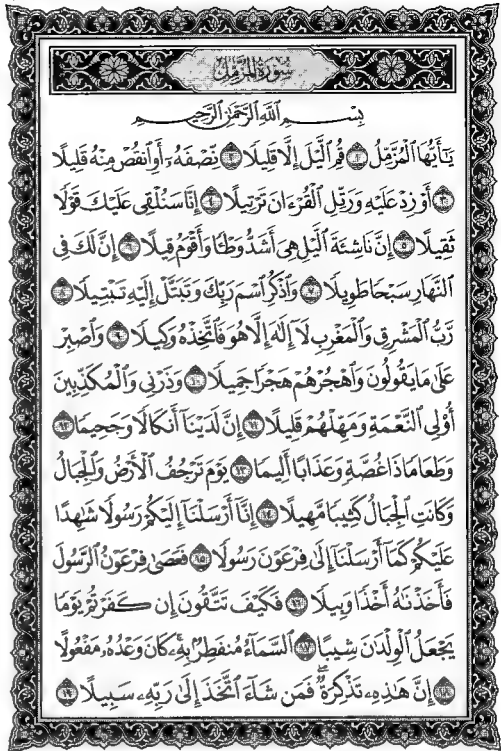 سُورَةُ المُزَّمِّل
بِسْمِ ٱللَّهِ ٱلرَّحْمَٰنِ ٱلرَّحِيمِ
يَٰٓأَيُّهَا ٱلْمُزَّمِّلُ ١ قُمِ ٱلَّيْلَ إِلَّا قَلِيلًا ٢ نِّصْفَهُۥٓ أَوِ ٱنقُصْ مِنْهُ قَلِيلًا
٣ أَوْ زِدْ عَلَيْهِ وَرَتِّلِ ٱلْقُرْءَانَ تَرْتِيلًا ٤ إِنَّا سَنُلْقِى عَلَيْكَ قَوْلًا
ثَقِيلًا ٥ إِنَّ نَاشِئَةَ ٱلَّيْلِ هِىَ أَشَدُّ وَطْـًٔا وَأَقْوَمُ قِيلًا ٦ إِنَّ لَكَ فِى
ٱلنَّهَارِ سَبْحًا طَوِيلًا ٧ وَٱذْكُرِ ٱسْمَ رَبِّكَ وَتَبَتَّلْ إِلَيْهِ تَبْتِيلًا ٨
رَّبُّ ٱلْمَشْرِقِ وَٱلْمَغْرِبِ لَآ إِلَٰهَ إِلَّا هُوَ فَٱتَّخِذْهُ وَكِيلًا ٩ وَٱصْبِرْ
عَلَىٰ مَا يَقُولُونَ وَٱهْجُرْهُمْ هَجْرًا جَمِيلًا ١٠ وَذَرْنِى وَٱلْمُكَذِّبِينَ
أُو۟لِى ٱلنَّعْمَةِ وَمَهِّلْهُمْ قَلِيلًا ١١ إِنَّ لَدَيْنَآ أَنكَالًا وَجَحِيمًا ١٢
وَطَعَامًا ذَا غُصَّةٍ وَعَذَابًا أَلِيمًا ١٣ يَوْمَ تَرْجُفُ ٱلْأَرْضُ وَٱلْجِبَالُ
وَكَانَتِ ٱلْجِبَالُ كَثِيبًا مَّهِيلًا ١٤ إِنَّآ أَرْسَلْنَآ إِلَيْكُمْ رَسُولًا شَٰهِدًا
عَلَيْكُمْ كَمَآ أَرْسَلْنَآ إِلَىٰ فِرْعَوْنَ رَسُولًا ١٥ فَعَصَىٰ فِرْعَوْنُ ٱلرَّسُولَ
فَأَخَذْنَٰهُ أَخْذًا وَبِيلًا ١٦ فَكَيْفَ تَتَّقُونَ إِن كَفَرْتُمْ يَوْمًا
يَجْعَلُ ٱلْوِلْدَٰنَ شِيبًا ١٧ ٱلسَّمَآءُ مُنفَطِرٌۢ بِهِۦ ۚ كَانَ وَعْدُهُۥ مَفْعُولًا
١٨ إِنَّ هَٰذِهِۦ تَذْكِرَةٌ ۖ فَمَن شَآءَ ٱتَّخَذَ إِلَىٰ رَبِّهِۦ سَبِيلًا ١٩